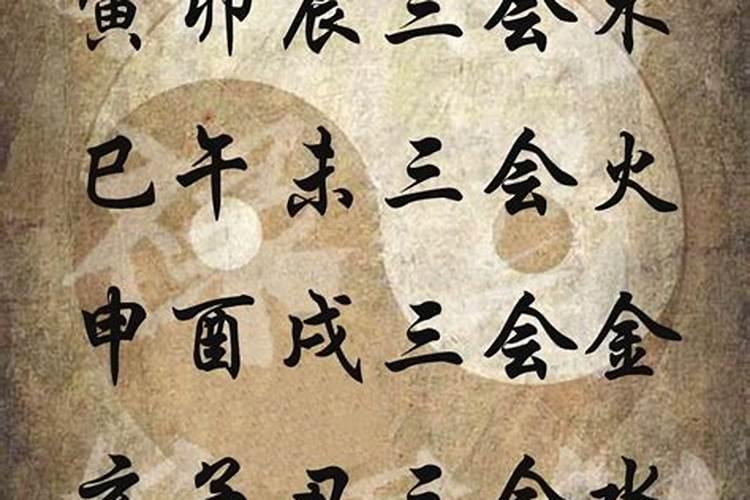 寅卯辰三会木
巳午未三会火
申酉戌三会金
亥子丑三会水